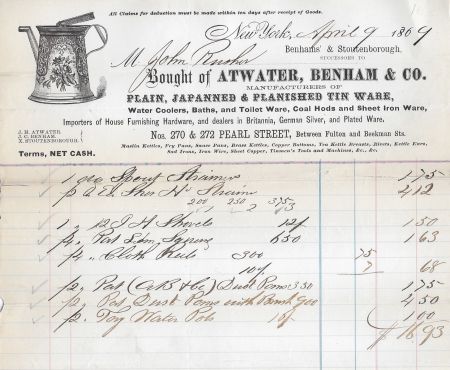 All Claims for deduction must be made within ten days after receipt of Goods.
New York, April 9 1869
M John
Benhams' & Stoutenborough,
SUCCESSORS TO
Bought of ATWATER, BENHAM & CO.
MANUFACTURERS OF
PLAIN, JAPANNED & PLANISHED TIN WARE,
Water Coolers, Baths, and Toilet Ware, Coal Hods and Sheet Iron Ware,
Importers of House Furnishing Hardware, and dealers in Britannia, German Silver, and Plated Ware.
J. H. ATWATER.
J. C. BENHAM.
X. STOUTENBOROUGH.
Nos. 270 & 272 PEARL STREET, Between Fulton and Beekman Sts.
Terms, NET CASH.
Maslin Kettles, Fry Pans, Sauce Pans, Brass Kettles, Copper Bottoms, Tea Kettle Breasts, Rivets, Kettle Ears,
Sad Irons, Iron Wire, Sheet Copper, Tinmen's Tools and Machines, &c., &c.
1 Spout Strainers 175
412
200 250 375
1 12 J H Shovels 12/ 150
650 163
Cloth 300 75
10/ 7 68
Dust Pans 350 175
Dust Pans with Brush 900 450
Toy Water Pots 10/ 100
$16 93